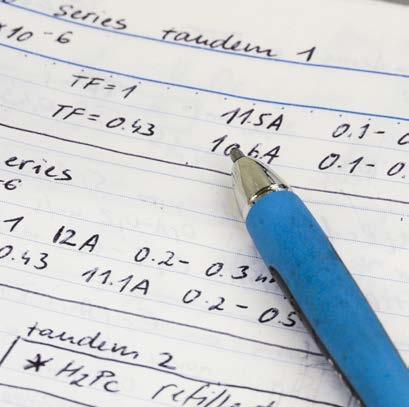 series tandem 1
×10⁻⁶
TF=1 11.5A 0.1-
TF=0.43 10.6A 0.1-0.
eries
-6
1 12A 0.2-0.3
0.43 11.1A 0.2-0.5
tandem 2
* H2Pc refilled